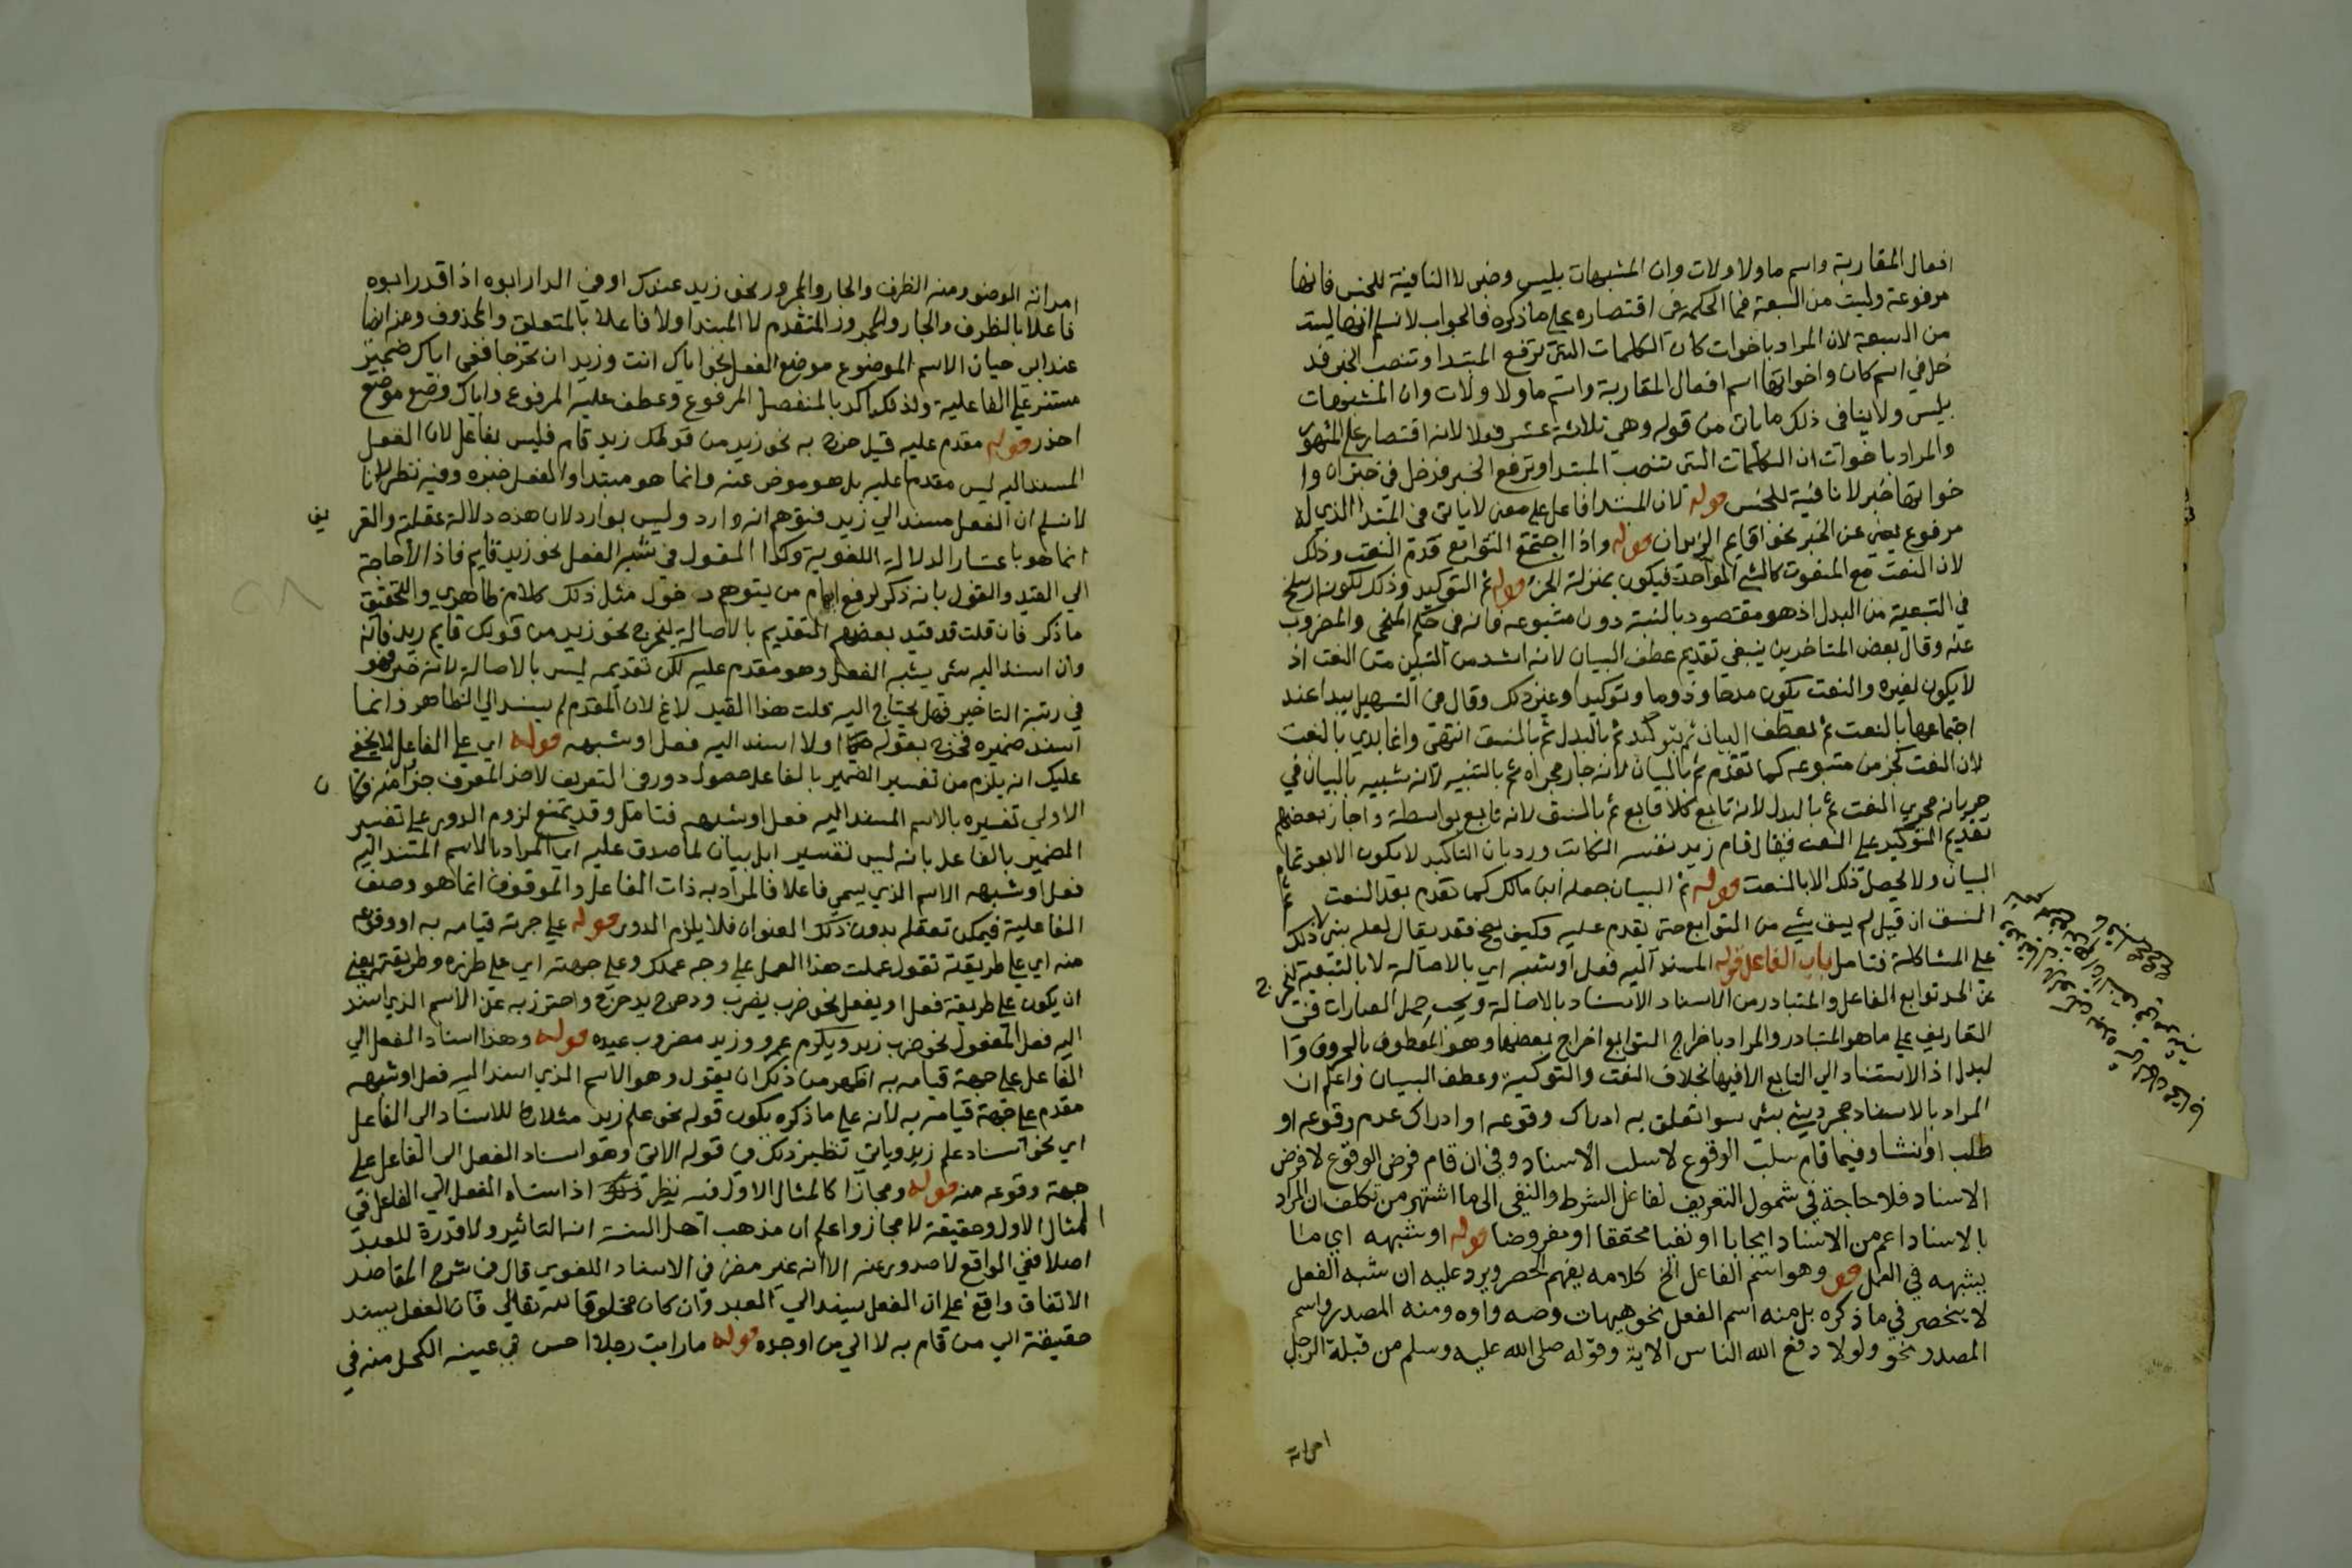 افعال المقاربة واسم ما ولا ولات وان المشبهات بليس وخبر لا النافية للجنس فانها
مرفوعة وليست من السبعة فما الحكمة في اقتصاره على ما ذكره فالجواب لا نسلم انها ليست
من السبعة لان المراد باخوات كان الكلمات التي ترفع المبتدا وتنصب الخبر فد
خل في اسم كان واخواتها اسم افعال المقاربة واسم ما ولا ولات وان المشبهات
بليس ولا ينافي ذلك ما يات من قوله وهي ثلاثة عشر فعلا لانه اقتصار على المشهور
والمراد باخوات ان الكلمات التي تنصب المبتدا وترفع الخبر فدخل في خبر ان وا
خواتها خبر لا نافية للجنس قوله لان المبتدا فاعل على معنى لا ياتي في المبتدا الذي له
مرفوع يغني عن الخبر نحو اقايم الزيدان قوله واذا اجتمع التوابع قدم النعت وذلك
لان النعت مع المنعوت كالشي الواحد فيكون بمنزلة الجزء قوله ثم التوكيد وذلك لكونه ارسخ
في التبعية من البدل اذ هو مقصود بالنسبة دون متبوعه فانه في حكم المنحى والمضروب
عنه وقال بعض المتاخرين ينبغي تقديم عطف البيان لانه اشد من التبين من النعت اذ
لا يكون لغيره والنعت يكون مدحا وذوما وتوكيدا وغير ذلك وقال في التسهيل يبدا عند
اجتماعها بالنعت ثم بعطف البيان ثم بتوكيد ثم بالبدل ثم بالنسق انتهى وانما بدي بالنعت
لان النعت كجز من متبوعه كما تقدم ثم بالبيان لانه جار مجراه ثم بالتنبيه لانه شبيه بالبيان في
جريانه مجرى النعت ثم بالبدل لانه تابع كلا فابع ثم بالنسق لانه تابع بواسطة واجاز بعضهم
تقديم التوكيد على النعت فيقال قام زيد نفسه الكاتب ورد بان التاكيد لا يكون الا بعد تمام
البيان ولا يحصل ذلك الا بالنعت قوله ثم البيان جعله ابن مالك كما تقدم بعد النعت
النسق ان قيل لم يبق شي من التوابع حتى يقدم عليه وكيف يصح فقد يقال لعله بنى ذلك
على المشاكلة فتامل باب الفاعل قوله المسند اليه فعل او شبهه اي بالاصالة لا بالتبعية ليخرج
عن الحد توابع الفاعل والمتبادر من الاسناد الاسناد بالاصالة ويجب حمل العبارات في
التعاريف على ما هو المتبادر والمراد باخراج التوابع اخراج بعضها وهو المعطوف بالحروف وا
لبدل اذ لا اسناد الي التابع الا فيها بخلاف النعت والتوكيد وعطف البيان واعلم ان
المراد بالاسناد مجرد شي بشي سوا تعلق به ادراك وقوعه او ادراك عدم وقوعه او
طلب او انشا وفيما قام سلب الوقوع لا سلب الاسناد وفي ان قام فرض الوقوع لا فرض
الاسناد فلا حاجة في شمول التعريف لفاعل الشرط والنفي الى ما اشتهر من تكلف ان المراد
بالاسناد اعم من الاسناد ايجابا او نفيا محققا او مفروضا قوله او شبهه اي ما
يشبهه في العمل قو وهو اسم الفاعل الخ كلامه يفهم الحصر ويرد عليه ان شبه الفعل
لا ينحصر في ما ذكره بل منه اسم الفعل نحو هيهات وصه واوه ومنه المصدر واسم
المصدر نحو ولولا دفع الله الناس الاية وقوله صلى الله عليه وسلم من قبلة الرجل
امراته
امراته الوضو ومنه الظرف والجار والمجرور نحو زيد عندك او في الدار ابوه اذا قدر ابوه
فاعلا بالظرف والجار والمجرور المتقدم لا المبتدا ولا فاعلا بالمتعلق والمحذوف ومنه ايضا
عند ابي حيان الاسم الموضوع موضع الفعل نحو اياك انت وزيد ان تخرجا ففي اياك ضمير
مستتر على الفاعلية ولذلك اكد بالمنفصل المرفوع وعطف عليه المرفوع واياك وضع موضع
احذر قوله مقدم عليه قيل خرج به نحو زيد من قولك زيد قام فليس بفاعل لان الفعل
المسند اليه ليس مقدما عليه بل هو موخر عنه وانما هو مبتدا والفعل خبره وفيه نظر لانا
لا نسلم ان الفعل مسند الي زيد فتوهم انه وارد وليس بوارد لان هذه دلالة عقلية والقر
انما هو باعتبار الدلالة اللغوية وكذا المقول في شبه الفعل نحو زيد قايم فاذا لا حاجة
الي القيد والقول بانه ذكر لرفع ايهام من يتوهم دخول مثل ذلك كلام ظاهري والتحقيق
ما ذكر فان قلت قد قيد بعضهم التقديم بالاصالة ليخرج نحو زيد من قولك قايم زيد فانه
وان اسند اليه شي يشبه الفعل وهو مقدم عليه لكن تقديمه ليس بالاصالة لانه خبر فهو
في رتبة التاخير فهل يحتاج اليه قلت هذا القيد لاغ لان المقدم لم يسند الي الظاهر وانما
اسند ضميره فخرج بقوله اولا اسند اليه فعل او شبهه قوله اي على الفاعل لا يخفى
عليك انه يلزم من تفسير الضمير بالفاعل حصول دور في التعريف لاخذ المعرف جزا منه فكا
ن
الاولي تفسيره بالاسم المسند اليه فعل او شبهه فتامل وقد يمنع لزوم الدور على تفسير
الضمير بالفاعل بانه ليس تفسيرا بل بيان لما صدق عليه اي المراد بالاسم المسند اليه
فعل او شبهه الاسم الذي يسمى فاعلا فالمراد به ذات الفاعل والموقوف انما هو وصف
الفاعلية فيمكن تعقله بدون ذلك العنوان فلا يلزم الدور قوله علي جهة قيامه به او وقوعه
منه اي على طريقة تقول عملت هذا العمل على وجه عملك وعلى جهته اي على طرزه وطريقته يعني
ان يكون على طريقة فعل او يفعل نحو ضرب يضرب ودحرج يدحرج واحترز به عن الاسم الذي اسند
اليه فعل المفعول نحو ضرب زيد ويكرم عمرو وزيد مضروب عبده قوله وهذا اسناد الفعل الي
الفاعل على جهة قيامه به اظهر من ذلك ان يقول وهو الاسم الذي اسند اليه فعل او شبهه
مقدم على جهة قيامه به لانه على ما ذكره يكون قوله نحو علم زيد مثلا للاسناد الى الفاعل
اي نحو اسناد علم زيد وياتي نظير ذلك في قوله الاتي وهو اسناد الفعل الى الفاعل على
جهة وقوعه منه قوله ومجازا كالمثال الاول فيه نظر اذ اسناد الفعل الي الفاعل في
المثال الاول وحقيقة لا مجاز واعلم ان مذهب اهل السنة ان التاثير ولا قدرة للعبد
اصلا ففي الواقع لا صدور عنه الا انه غير مضر في الاسناد اللغوي قال في شرح المقاصد
الاتفاق واقع على ان الفعل يسند الي العبد وان كان مخلوقا لله تعالي فان الفعل يسند
حقيقة الي من قام به لا الي من اوجده قوله ما رايت رجلا احسن في عينه الكحل منه في